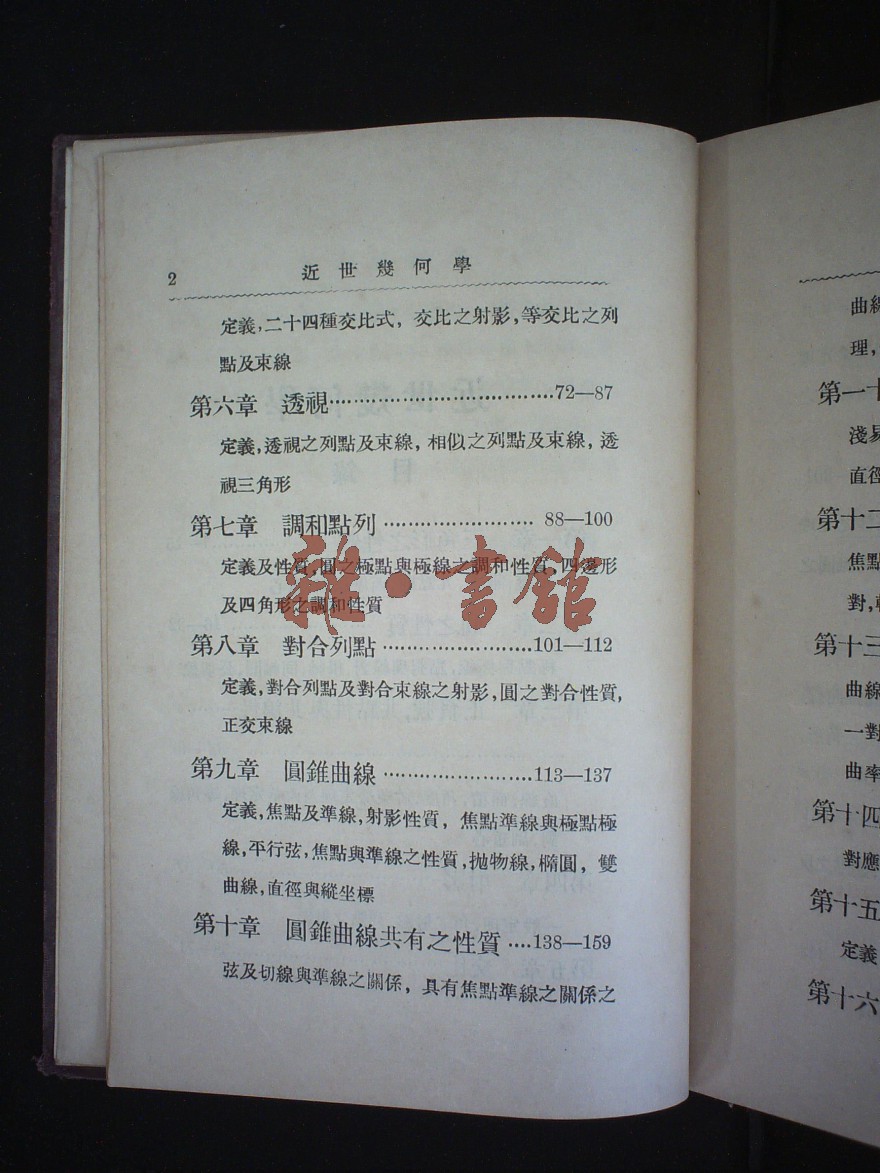 2 近世幾何學
定義,二十四種交比式,交比之射影,等交比之列
點及束線
第六章 透視··································72—87
定義,透視之列點及束線,相似之列點及束線,透
視三角形
第七章 調和點列······················· 88—100
定義及性質,圓之極點與極線之調和性質,四邊形
及四角形之調和性質
雜·書館
第八章 對合列點·······················101—112
定義,對合列點及對合束線之射影,圓之對合性質,
正交束線
第九章 圓錐曲線·······················113—137
定義,焦點及準線,射影性質,焦點準線與極點極
線,平行弦,焦點與準線之性質,拋物線,橢圓,雙
曲線,直徑與縱坐標
第十章 圓錐曲線共有之性質 ····138—159
弦及切線與準線之關係,具有焦點準線之關係之
曲線
理,
第一十
淺易
直徑
第十二
焦點
對,
第十三
曲線
一對
曲率
第十四
對應
第十五
定義
第十六